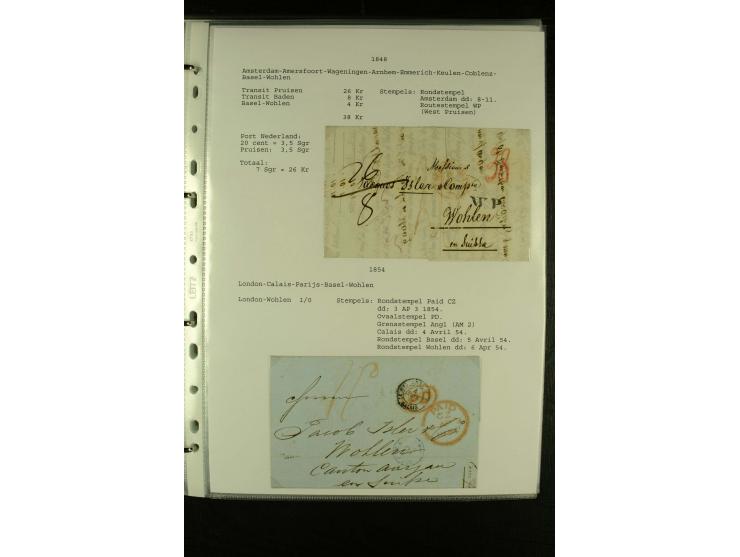 1848
Amsterdam-Amersfoort-Wageningen-Arnhem-Emmerich-Keulen-Coblenz-
Basel-Wohlen
Transit Pruisen 26 Kr Stempels: Rondstempel
Transit Baden 8 Kr Amsterdam dd: 8-11.
Basel-Wohlen 4 Kr Routestempel WP
38 Kr (West Pruisen)
Port Nederland:
20 cent = 3,5 Sgr
Pruisen: 3,5 Sgr
Totaal:
7 Sgr = 26 Kr
Messieurs
Jacques Isler & Comp
8
W.P.
Wohlen
en Suisse
1854
London-Calais-Parijs-Basel-Wohlen
London-Wohlen 1/0 Stempels: Rondstempel Paid CZ
dd: 3 AP 3 1854.
Ovaalstempel PD.
Grensstempel Angl (AM 2)
Calais dd: 4 Avril 54.
Rondstempel Basel dd: 5 Avril 54.
Rondstempel Wohlen dd: 6 Apr 54.
PAID
CZ
Herren
Jacob Isler & Co
Wohlen
Canton Aargau
en Suisse
LEITZ